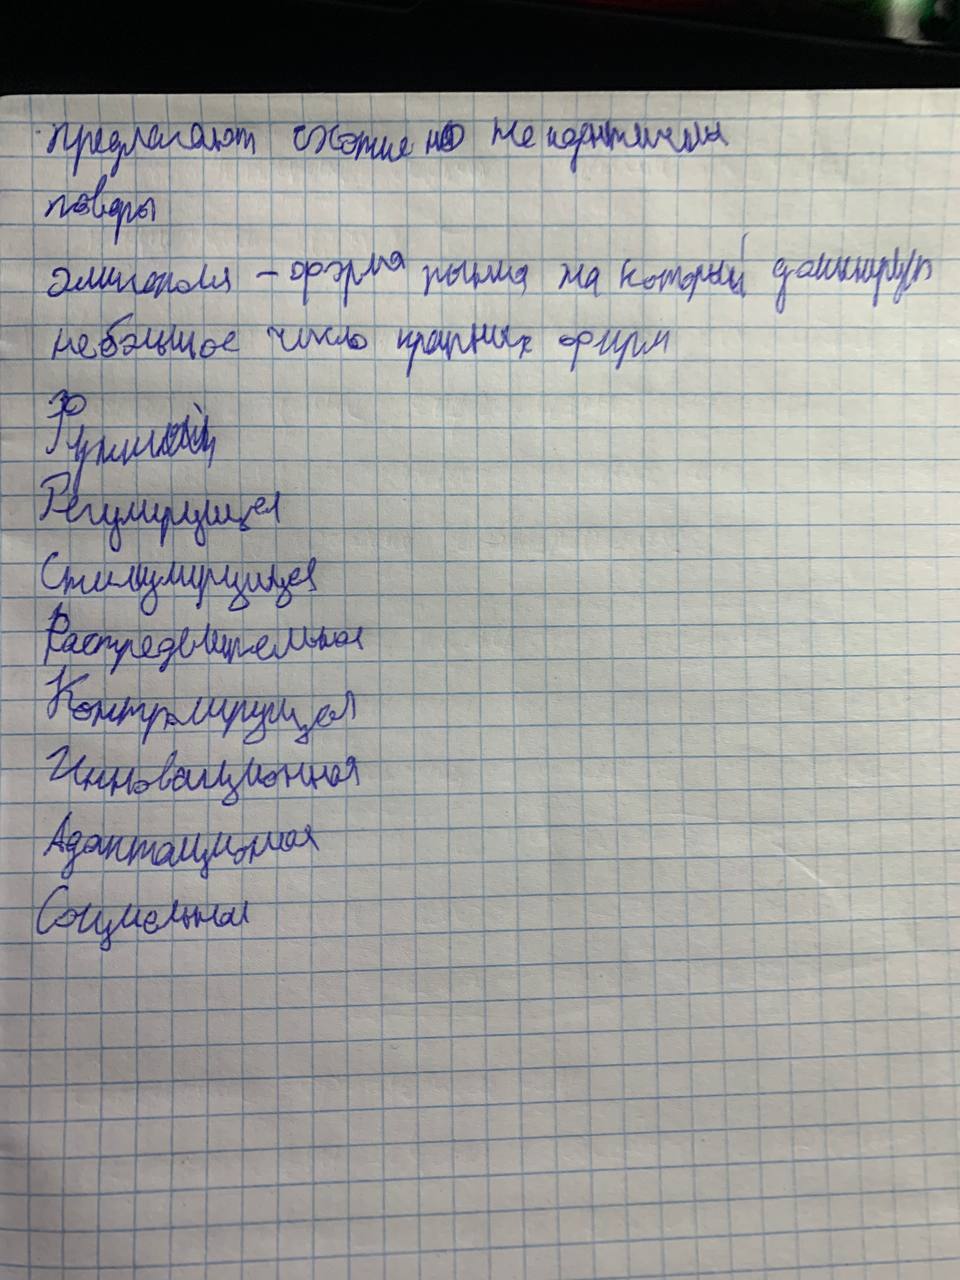 предлагают схожие но не идентичны
товары
элигополя – форма рынка на которой доминируют
небольшое число крупных фирм
Функций
Регулирующая
Стимулирующая
Распределительная
Контролирующая
Инновационная
Адаптационная
Социальная